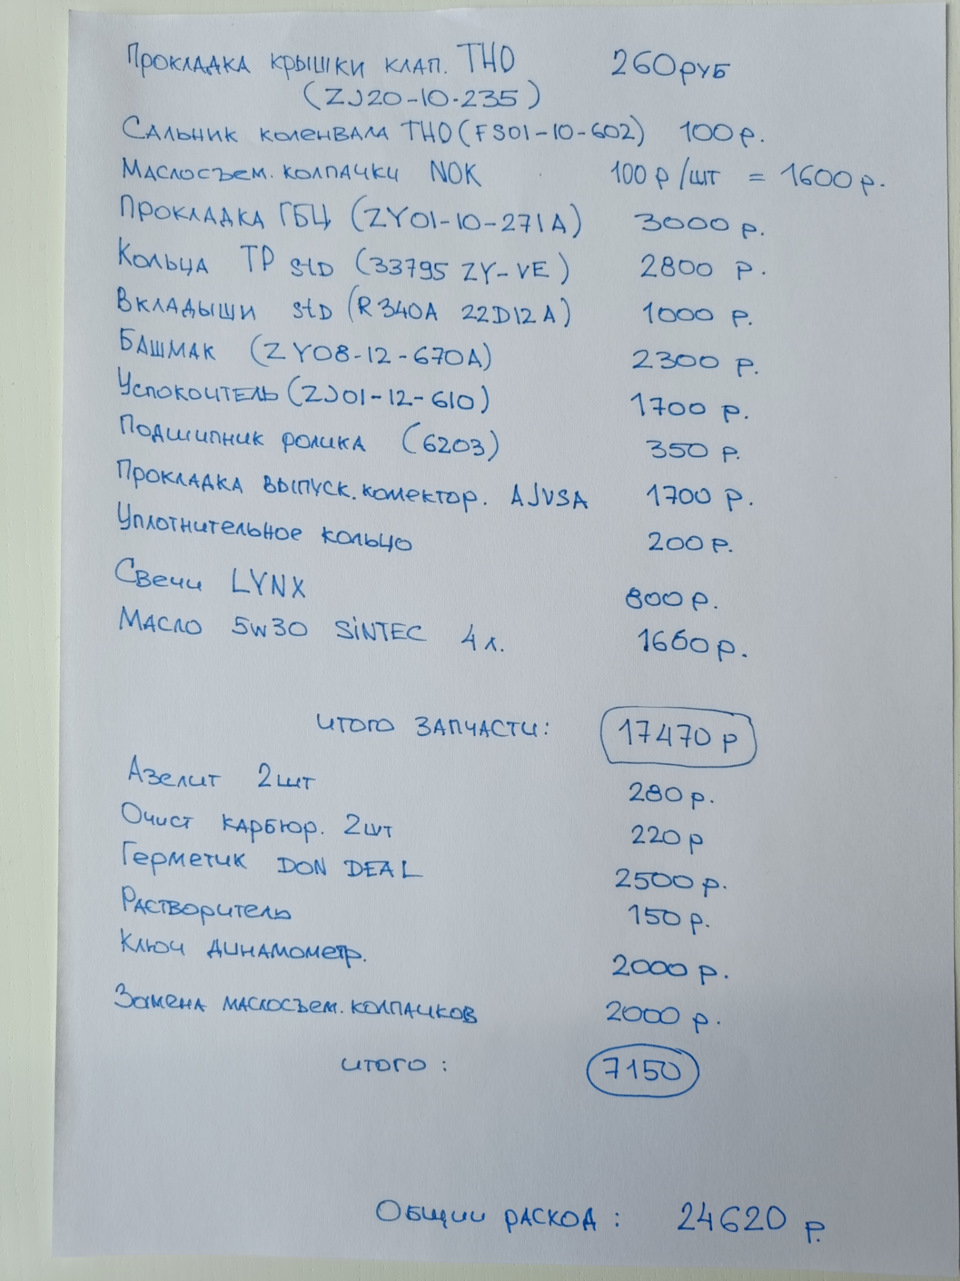 Прокладка крышки клап. ТНО 260руб
(ZJ20-10-235)
Сальник коленвала ТНО (FS01-10-602) 100р.
Маслосъем. колпачки NOK 100р/шт = 1600р.
Прокладка ГБЦ (ZY01-10-271A) 3000 р.
Кольца TP std (33795 ZY-VE) 2800 р.
Вкладыши std (R340A 22D12A) 1000 р.
Башмак (ZY08-12-670A) 2300 р.
Успокоитель (ZJ01-12-610) 1700 р.
Подшипник ролика (6203) 350 р.
Прокладка выпуск. комектор. AJUSA 1700 р.
Уплотнительное кольцо 200 р.
Свечи LYNX 800 р.
Масло 5w30 SiNTEC 4 л. 1660р.
итого запчасти: 17470 р
Азелит 2шт 280 р.
Очист карбюр. 2шт 220 р
Герметик DON DEAL 2500 р.
Растворитель 150 р.
Ключ динамометр. 2000 р.
Замена маслосъем. колпачков 2000 р.
итого: 7150
Общии раскод: 24620 р.